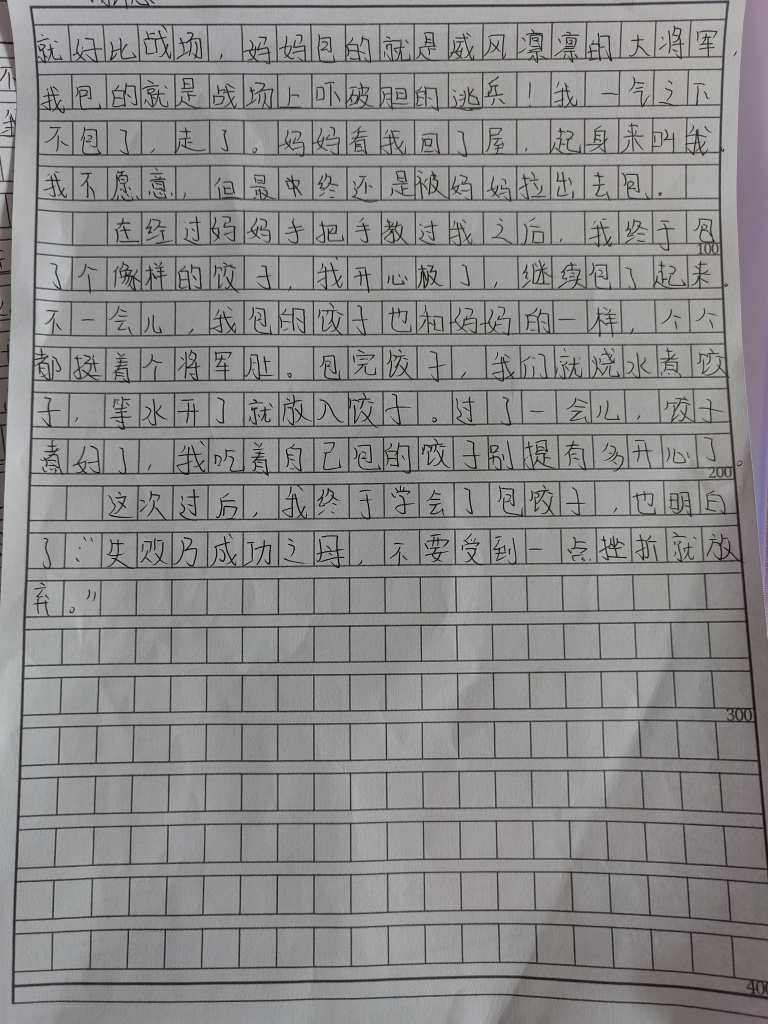 就好比战场，妈妈包的就是威风凛凛的大将军，
我包的就是战场上吓破胆的逃兵！我一气之下
不包了，走了。妈妈看我回了屋，起身来叫我。
我不愿意，但最中终还是被妈妈拉出去包。
在经过妈妈手把手教过我之后，我终于包
100
了个像样的饺子，我开心极了，继续包了起来。
不一会儿，我包的饺子也和妈妈的一样，个个
都挺着个将军肚。包完饺子，我们就烧水煮饺
子，等水开了就放入饺子。过了一会儿，饺子
煮好了，我吃着自己包的饺子别提有多开心了。
200
这次过后，我终于学会了包饺子，也明白
了：“失败乃成功之母，不要受到一点挫折就放
弃。”
300
400